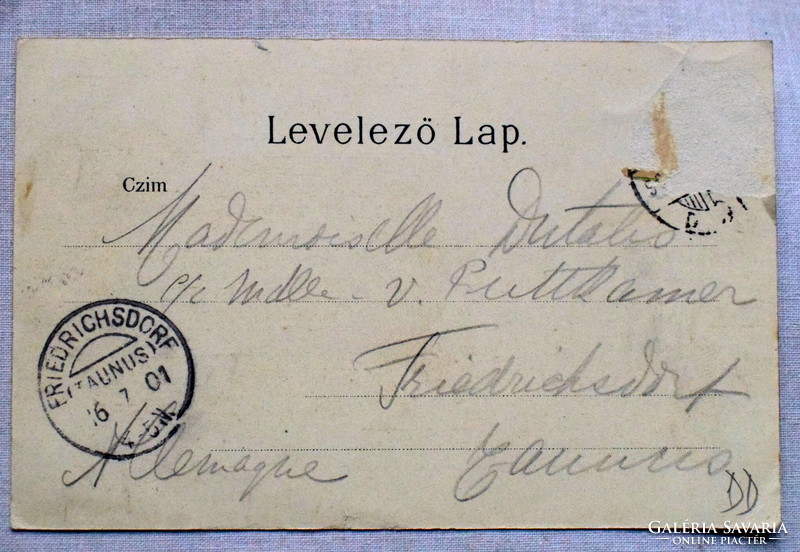 Levelező Lap.
Czim
Mademoiselle
c/o Mdlle v. Puttkamer
Friedrichsdorf
Allemagne Taunus
FRIEDRICHSDORF
(TAUNUS)
16 7 01
4-5N.
DD
GALÉRIA SAVARIA
ONLINE PIACTÉR